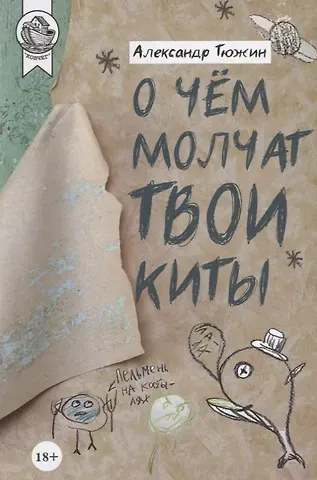 Александр Тюжин
О ЧЁМ
МОЛЧАТ
ТВОИ
КИТЫ
ПЕЛЬМЕНЬ
НА КОСТЫ-
ЛЯХ
18+